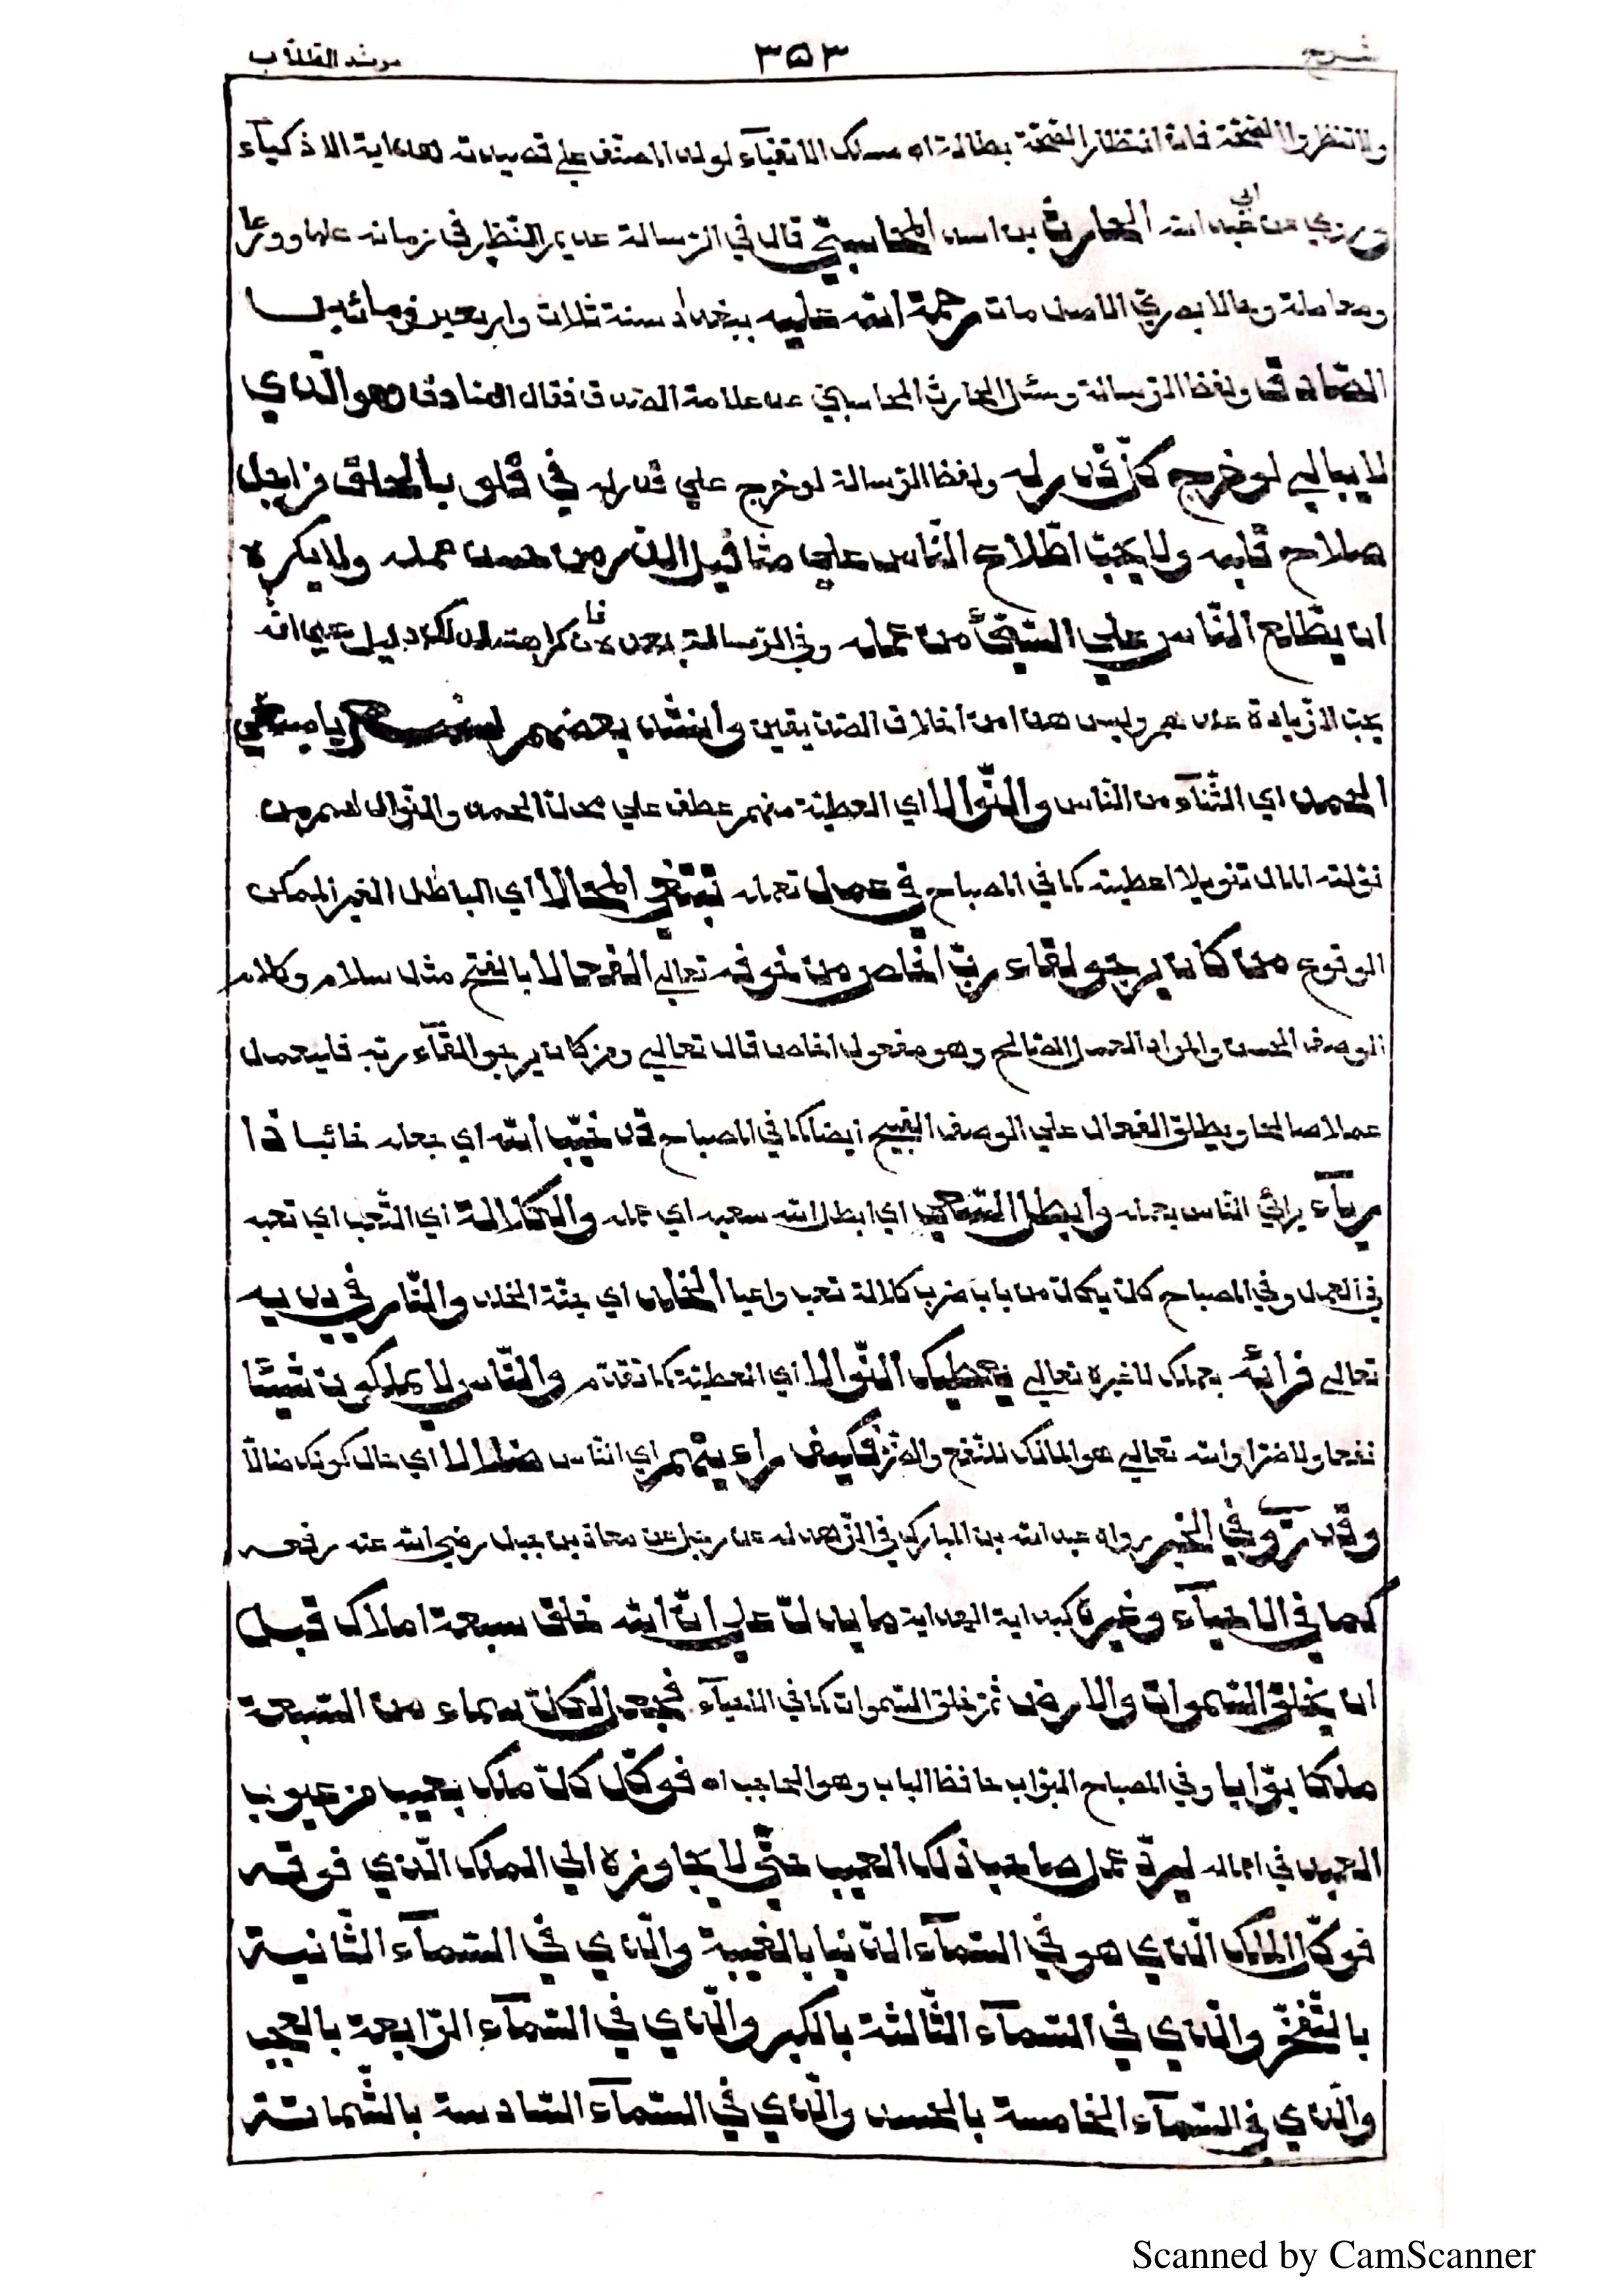 شرح ٣٥٣ مرشد الطلّاب
ولا تنتظروا الصّحّة فانّ انتظار الصّحّة بطالة اه مسلك الاتقيآء لولد المصنّف علي قصيدته هداية الاذكيآء
وروي عن ابي عبد الله الحارث بن اسد المحاسبيّ قال في الرّسالة عديم النّظير في زمانه علما وورعا
ومعاملة وحالا بصريّ الاصل مات رحمة الله عليه ببغداد سنة ثلاث واربعين ومائتين
الصّادق ولفظ الرّسالة وسئل الحارث المحاسبيّ عن علامة الصّدق فقال الصّادق هو الّذي
لا يبالي لو خرج كلّ قدر له ولفظ الرّسالة لو خرج علي قدر له في قلوب الخلق من اجل
صلاح قلبه ولا يحبّ اطّلاع النّاس علي مثاقيل الذّرّ من حسن عمله ولا يكره
ان يطّلع النّاس علي السّيّئ من عمله وفي الرّسالة بعد هذا فانّ كراهته لذلك دليل علي انّه
يحبّ الزّيادة عندهم وليس هذا من اخلاق الصّدّيقين وانشد بعضهم يا مبتغي
الحمد اي الثّنآء من النّاس والنّوالا اي العطيّة منهم عطف علي محلّ الحمد والنّوال اسم من
نوّلته المال تنويلا اعطيته كما في المصباح في عمل تعمله تبتغي المحالا اي الباطل الغير الممكن
الوقوع من كان يرجو لقاء ربّ اخلص من خوفه تعالي الفعالا بالفتح مثل سلام وكلام
الوصف الحسن والمراد العمل الصّالح وهو مفعول اخلص قال تعالي ومن كان يرجو لقآء ربّه فليعمل
عملا صالحا ويطلق الفعال علي الوصف القبيح ايضا كما في المصباح قد خيّب الله اي جعله خائبا ذا
ريآء يرائي النّاس بعمله وابطل السّعي اي ابطل الله سعيه اي عمله والكلالة اي التّعب اي تعبه
في العمل وفي المصباح كلّ يكلّ من باب ضرب كلالة تعب واعيا الخلد اي جنّة الخلد والنّار في يديه
تعالي فرائه بعملك لا غيره تعالي يعطيك النّوالا اي العطيّة كما تقدّم والنّاس لا يملكون شيئا
نفعا ولا ضرّا والله تعالي هو المالك للنّفع والضّرّ فكيف راءيتهم اي النّاس ضلالا اي حال كونك ضالّا
وقد روي في الخبر رواه عبد الله بن المبارك في الزّهد له عن رجل عن معاذ بن جبل رضي الله عنه رفعه
كما في الاحيآء وغيره كبداية الهداية ما يدلّ علي انّ الله خلق سبعة املاك قبل
ان يخلق السّموات والارض ثمّ خلق السّموات كما في الاحيآء فجعل لكلّ سماء من السّبعة
ملكا بوّابا وفي المصباح البوّاب حافظ الباب وهو الحاجب اه فوكّل كلّ ملك بعيب من عيوب
العبد في اعماله ليردّ عمل صاحب ذلك العيب حتّي لا يجاوزه الي الملك الّذي فوقه
فوكّل الملك الّذي هو في السّمآء الدّنيا بالغيبة والّذي في السّمآء الثّانية
بالتّفخّر والّذي في السّمآء الثّالثة بالكبر والّذي في السّمآء الرّابعة بالعجب
والّذي في السّمآء الخامسة بالحسد والّذي في السّمآء السّادسة بالشّماتة
Scanned by CamScanner